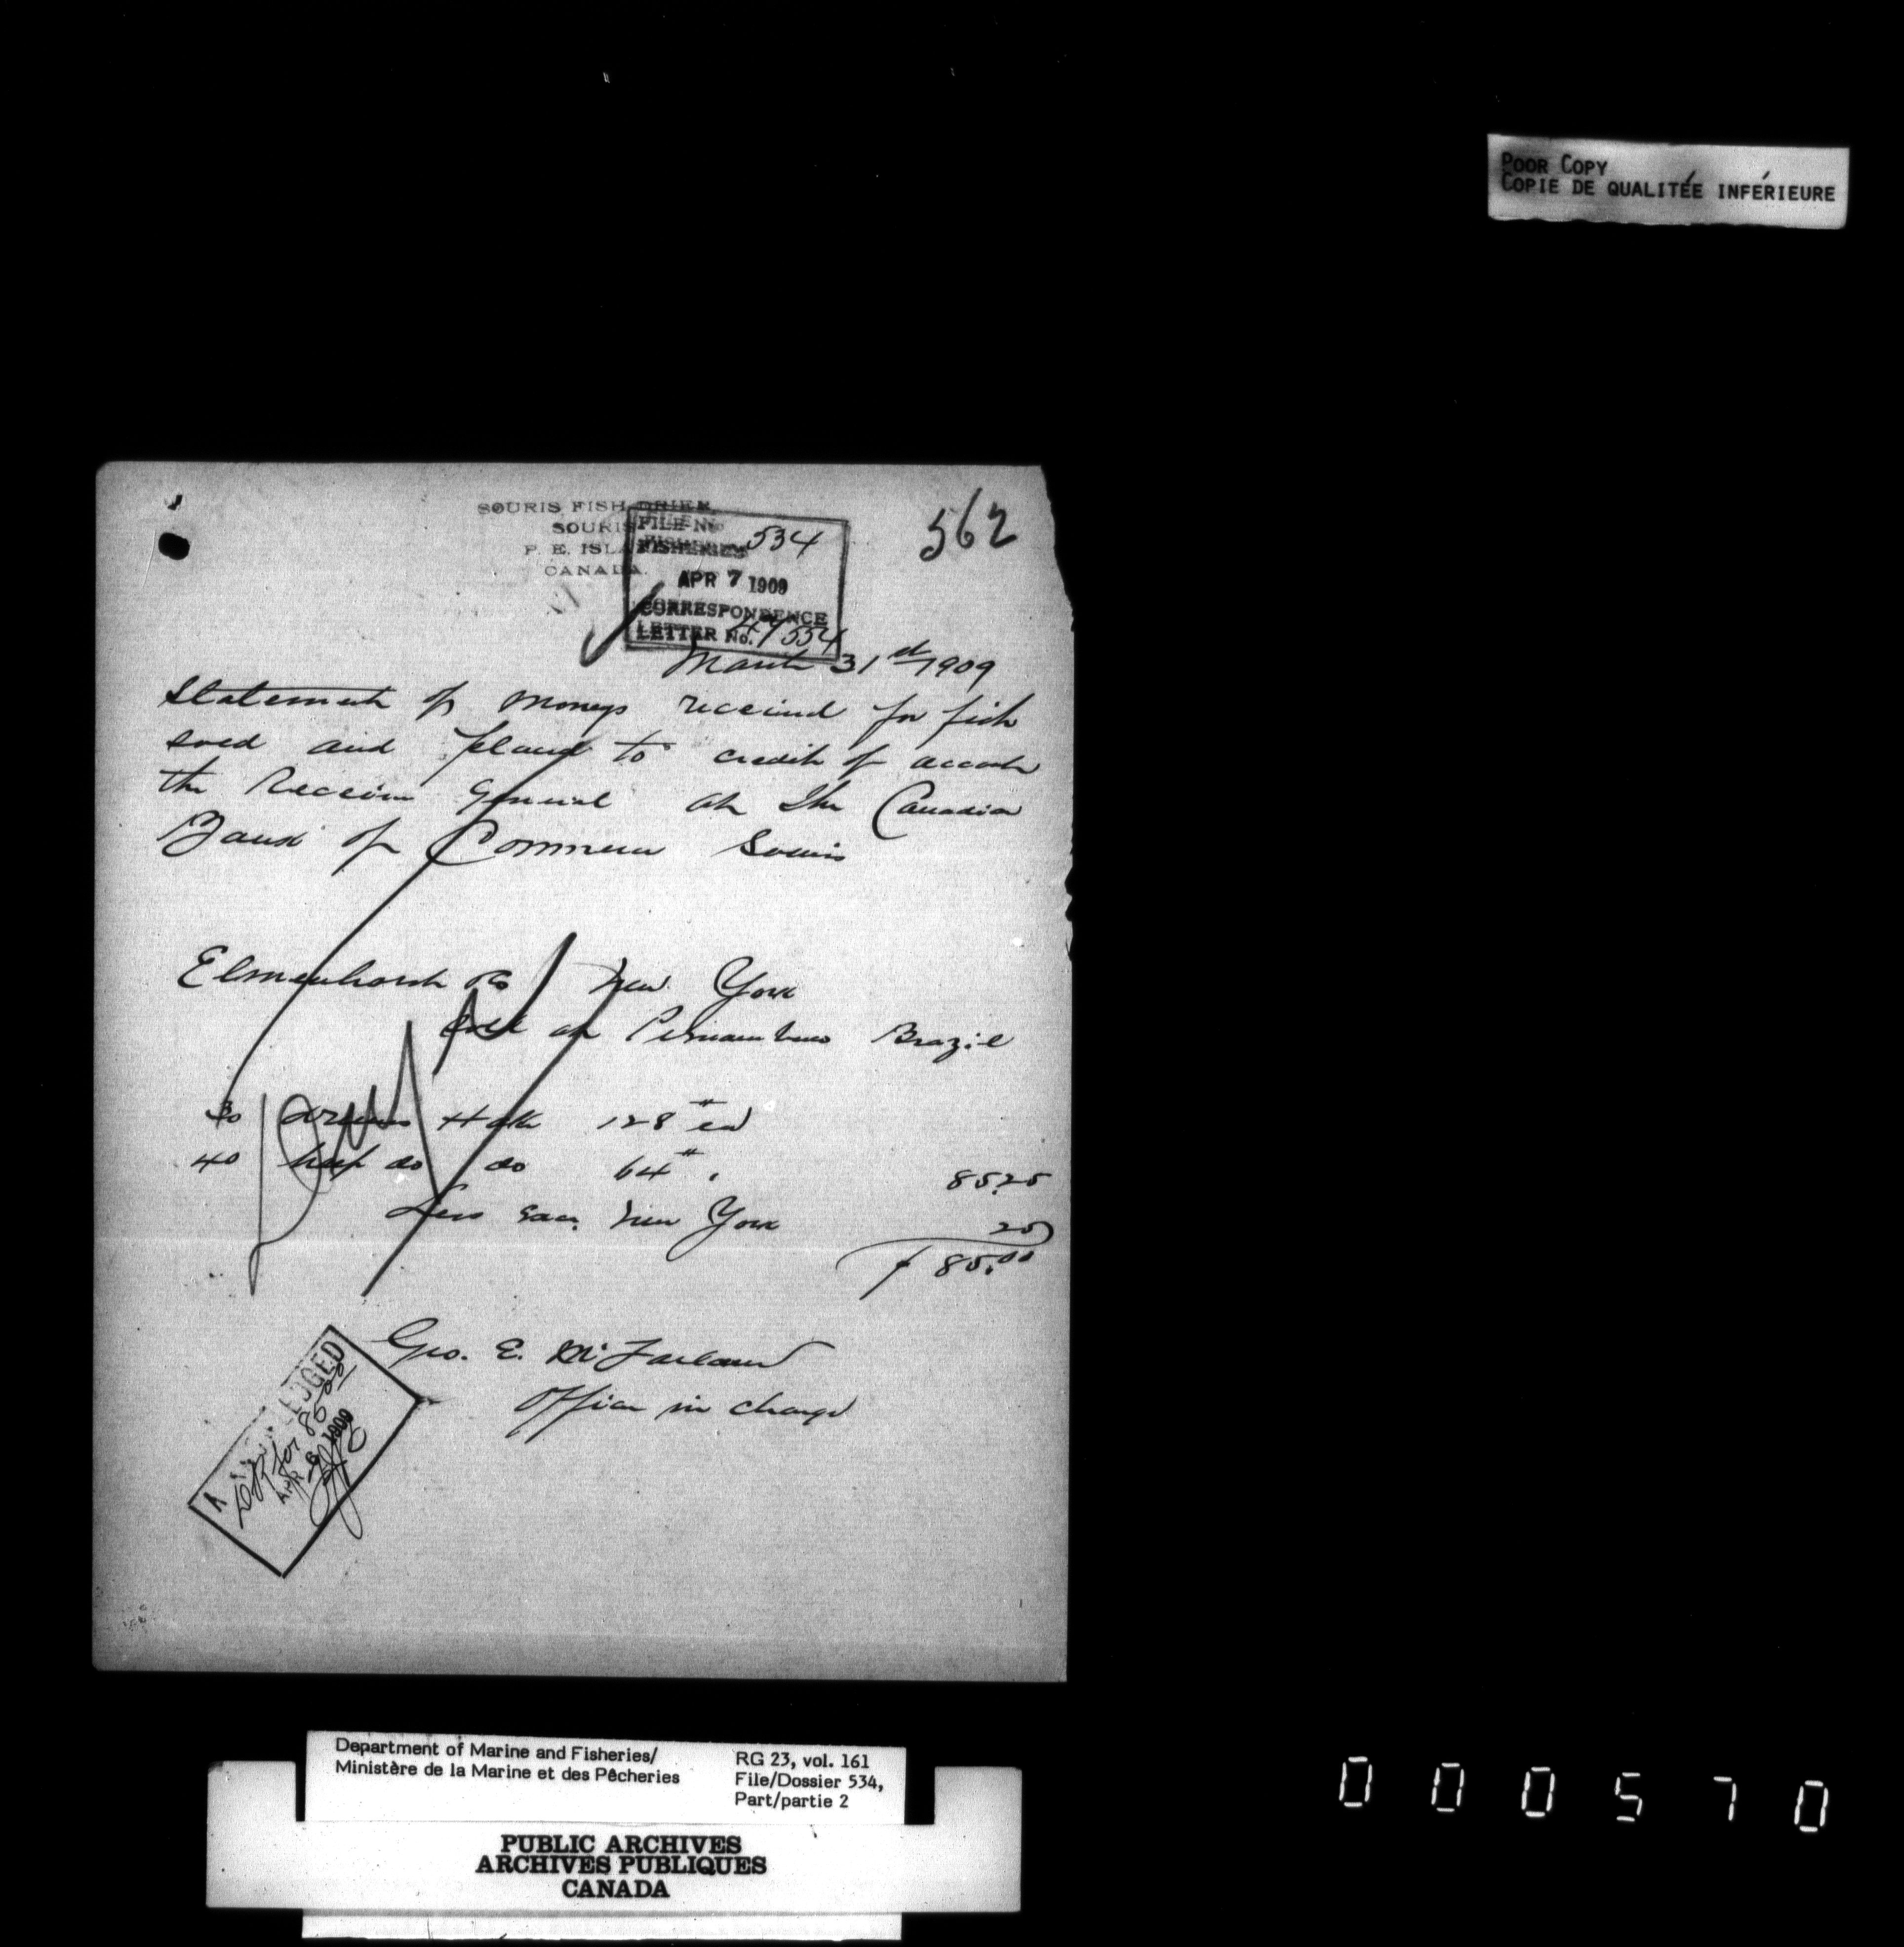 POOR COPY
COPIE DE QUALITÉE INFÉRIEURE
SOURIS FISH DRIER,
SOURIS
P. E. ISLA
CANADA.
562
FILE No 534
FISHERIES
APR 7 1909
CORRESPONDENCE
LETTER No. 47554
March 31st 1909
Statement of moneys received for fish
sold and placed to credit of
the Receiver General at The Canadian
Bank of Commerce Souris
Elmenhorst Co New York
Sold at Pernambuco Brazil
30 drums Hake 128# ea
40 half do do 64# "
85.25
Less New York
25
$ 85.00
Geo. E. McFarland
Officer in charge
A LEDGED
for 85.00
APR 6 1909
Department of Marine and Fisheries/
Ministère de la Marine et des Pêcheries
RG 23, vol. 161
File/Dossier 534,
Part/partie 2
PUBLIC ARCHIVES
ARCHIVES PUBLIQUES
CANADA
000570